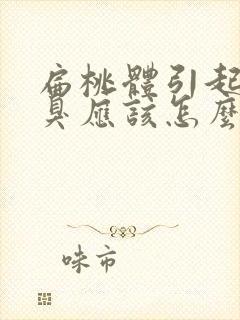 扁桃體引起
臭應該怎麼
咪市